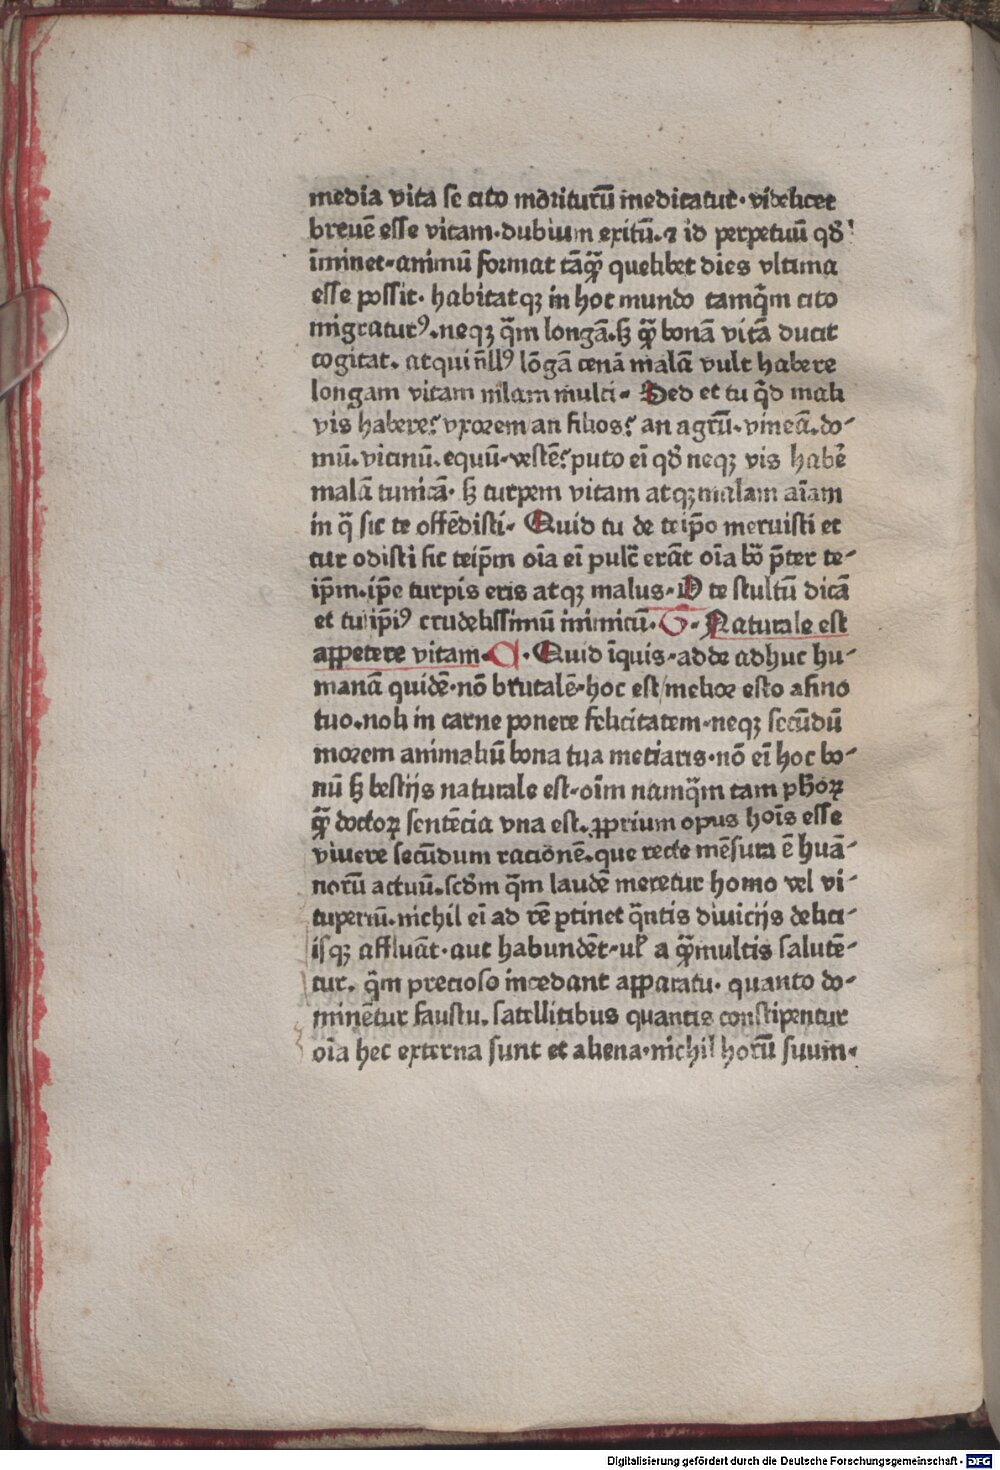 media vita se cito moriturū meditatur· videlicet
breuē esse vitam·dubium exitū·⁊ id perpetuū qḋ
īminet·animū format tāq̄ꝫ quelibet dies vltima
esse possit· habitatqꝫ in hoc mundo tamq̄m cito
migraturꝰ·neqꝫ q̄m longā·sꝫ q̄ꝫ bonā vitā ducit
cogitat· atqui n̄llꝰ lōgā cenā malā vult habere
longam vitam mlam multi· Sed et tu q̄d mali
vis habere? vxorem an filios? an agrū·vineā·do-
mū·vicinū·equū·vestē? puto eī qḋ neqꝫ vis habē
malā tunicā· sꝫ turpem vitam atqꝫ malam aīam
in q̄ sic te offēdisti· Quid tu de teip̄o meruisti et
cur odisti sic teip̄m oīa eī pulc̄ erāt oīa bō p̄ter te-
ip̄m·ip̄e turpis eris atqꝫ malus· O te stultū dicā
et tuiip̄iꝰ crudelissimū inimicū· G· Naturale est
appetere vitam· C· Quid īquis·adde adhuc hu-
manā quidē·nō brutalē·hoc est/melior esto asino
tuo·noli in carne ponere felicitatem·neqꝫ secūdū
morem animaliū bona tua metiaris·nō eī hoc bo-
nū sꝫ bestijs naturale est·oīm namq̄m tam ph̄oꝝ
q̄ꝫ doctoꝝ sentēcia vna est·ꝓprium opus hoīs esse
viuere secūdum racionē·que recte mēsura ē huā-
norū actuū·scḋm q̄m laudē meretur homo vel vi-
tuperiū·nichil eī ad rē ꝑtinet q̄ntis diuicijs delici-
isqꝫ affluāt·aut habundēt·uł a q̄ꝫmultis salutē-
tur· q̄m precioso incedant apparatu· quanto do-
minētur faustu· satellitibus quantis constipentur
oīa hec externa sunt et aliena·nichil horū suum·
Digitalisierung gefördert durch die Deutsche Forschungsgemeinschaft - DFG